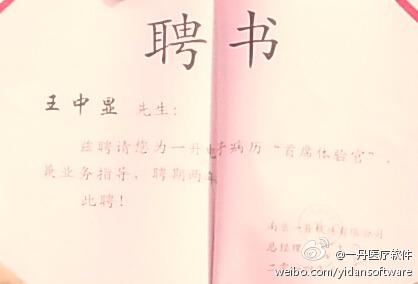 聘书
王中显 先生：
兹聘请您为一丹电子病历“首席体验官”，
兼业务指导，聘期两年
此聘！
南京一丹软件有限公司
总经理
@一丹医疗软件
weibo.com/yidansoftware